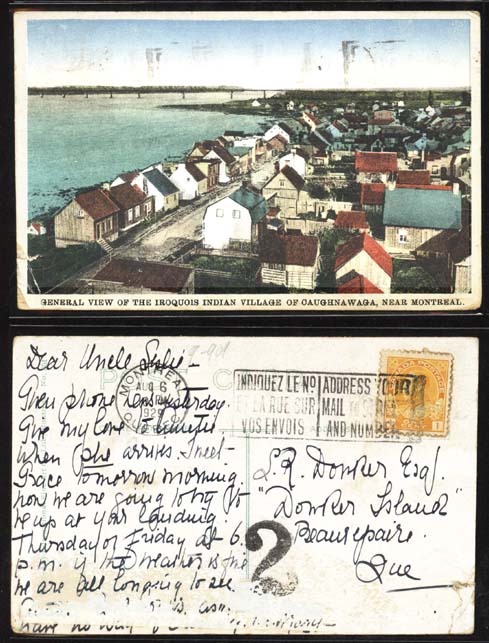 GENERAL VIEW OF THE IROQUOIS INDIAN VILLAGE OF CAUGHNAWAGA, NEAR MONTREAL.
Dear Uncle
yesterday.
Give my love to
When she arrives. Meet
Grace tomorrow morning
now we are going to try to
be up at your landing.
Thursday or Friday at 6.
p.m. if the weather is fine
we are all longing to see
have no way of
MONTREAL
AUG 6
1929
QUEBEC
INDIQUEZ LE NO
ET LA RUE SUR
VOS ENVOIS
ADDRESS YOUR
MAIL TO STREET
AND NUMBER
1
L.R. Dowker Esq.
"Dowker Island"
Beaurepaire.
Que
2